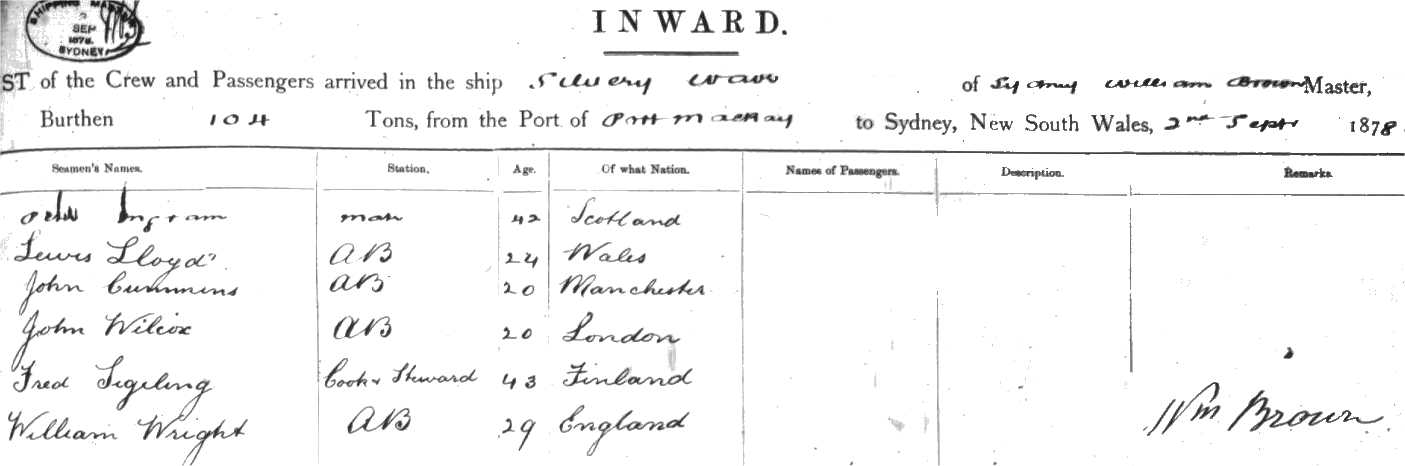 SHIPPING MASTER
2
SEP
1878
SYDNEY
INWARD.
ST of the Crew and Passengers arrived in the ship Silvery Wave of Sydney William Brown Master,
Burthen 104 Tons, from the Port of Port Mackay to Sydney, New South Wales, 2nd Sept 1878
Seamen's Names. Station. Age. Of what Nation. Names of Passengers. Description. Remarks.
Ingram mate 42 Scotland
Lewis Lloyd AB 24 Wales
John Cummins AB 20 Manchester
John Wilcox AB 20 London
Fred Sigeling Cook & Steward 43 Finland
William Wright AB 29 England
Wm Brown